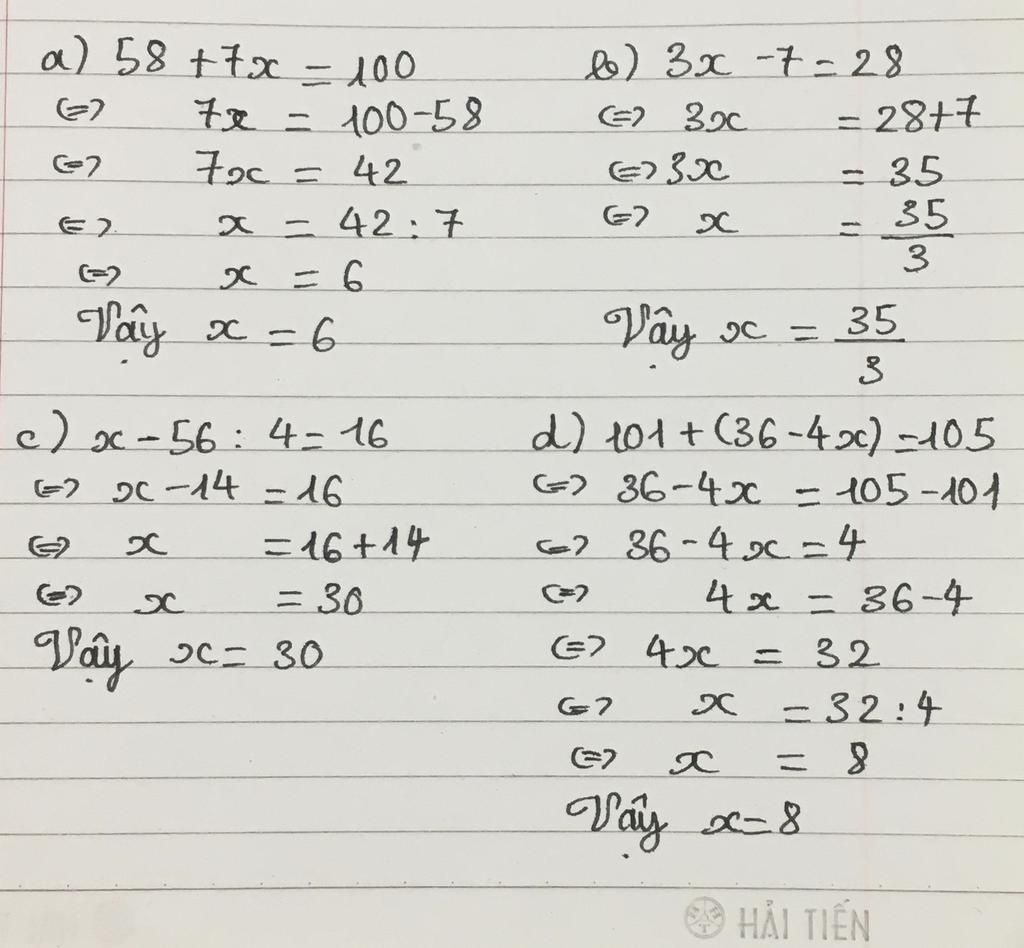 a) 58 + 7x = 100
⇔ 7x = 100-58
⇔ 7x = 42
⇔ x = 42 : 7
⇔ x = 6
Vậy x = 6
b) 3x - 7 = 28
⇔ 3x = 28+7
⇔ 3x = 35
⇔ x = 35/3
Vậy x = 35/3
c) x - 56 : 4 = 16
⇔ x - 14 = 16
⇔ x = 16 + 14
⇔ x = 30
Vậy x = 30
d) 101 + (36 - 4x) = 105
⇔ 36 - 4x = 105 - 101
⇔ 36 - 4x = 4
⇔ 4x = 36 - 4
⇔ 4x = 32
⇔ x = 32 : 4
⇔ x = 8
Vậy x = 8
HẢI TIẾN